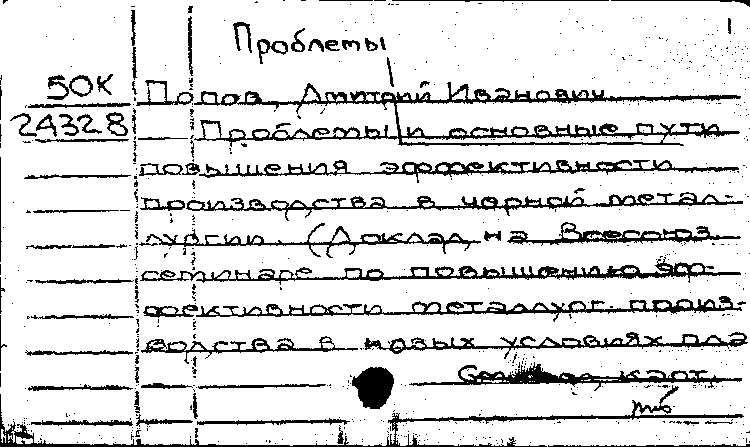 Проблемы
50К Попов, Дмитрий Иванович
24328 Проблемы и основные пути
повышения эффективности
производства в черной метал-
лургии. (Доклад на Всесоюз.
семинаре по повышению эф-
фективности металлург. произ-
водства в новых условиях пла
карт.